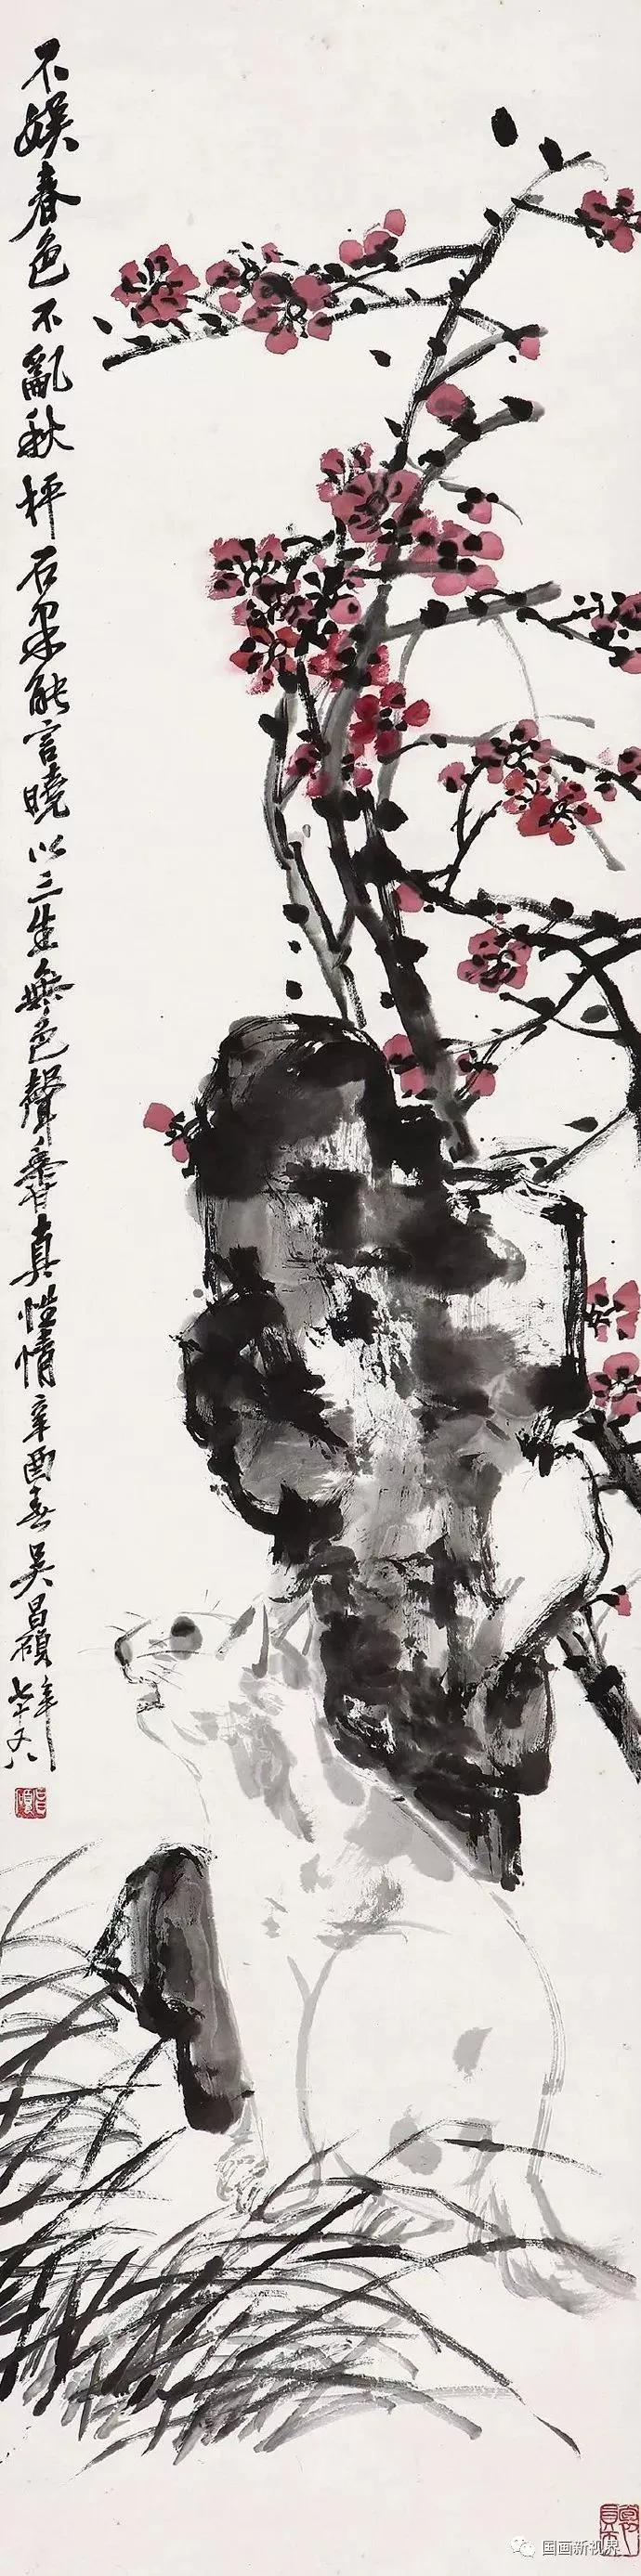 不娱春色不亂秋枰石果能言曉以三生無色聲香真性情辛酉春吳昌碩年七十又八
国画新视界